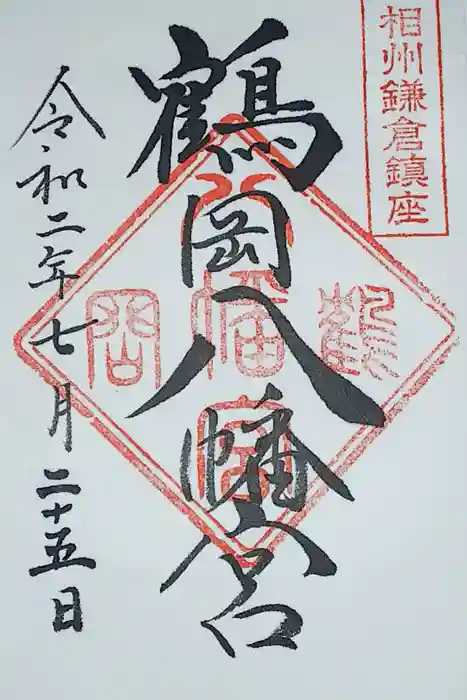 相州鎌倉鎮座
鶴岡八幡宮
鶴岡八幡宮
令和二年七月二十五日